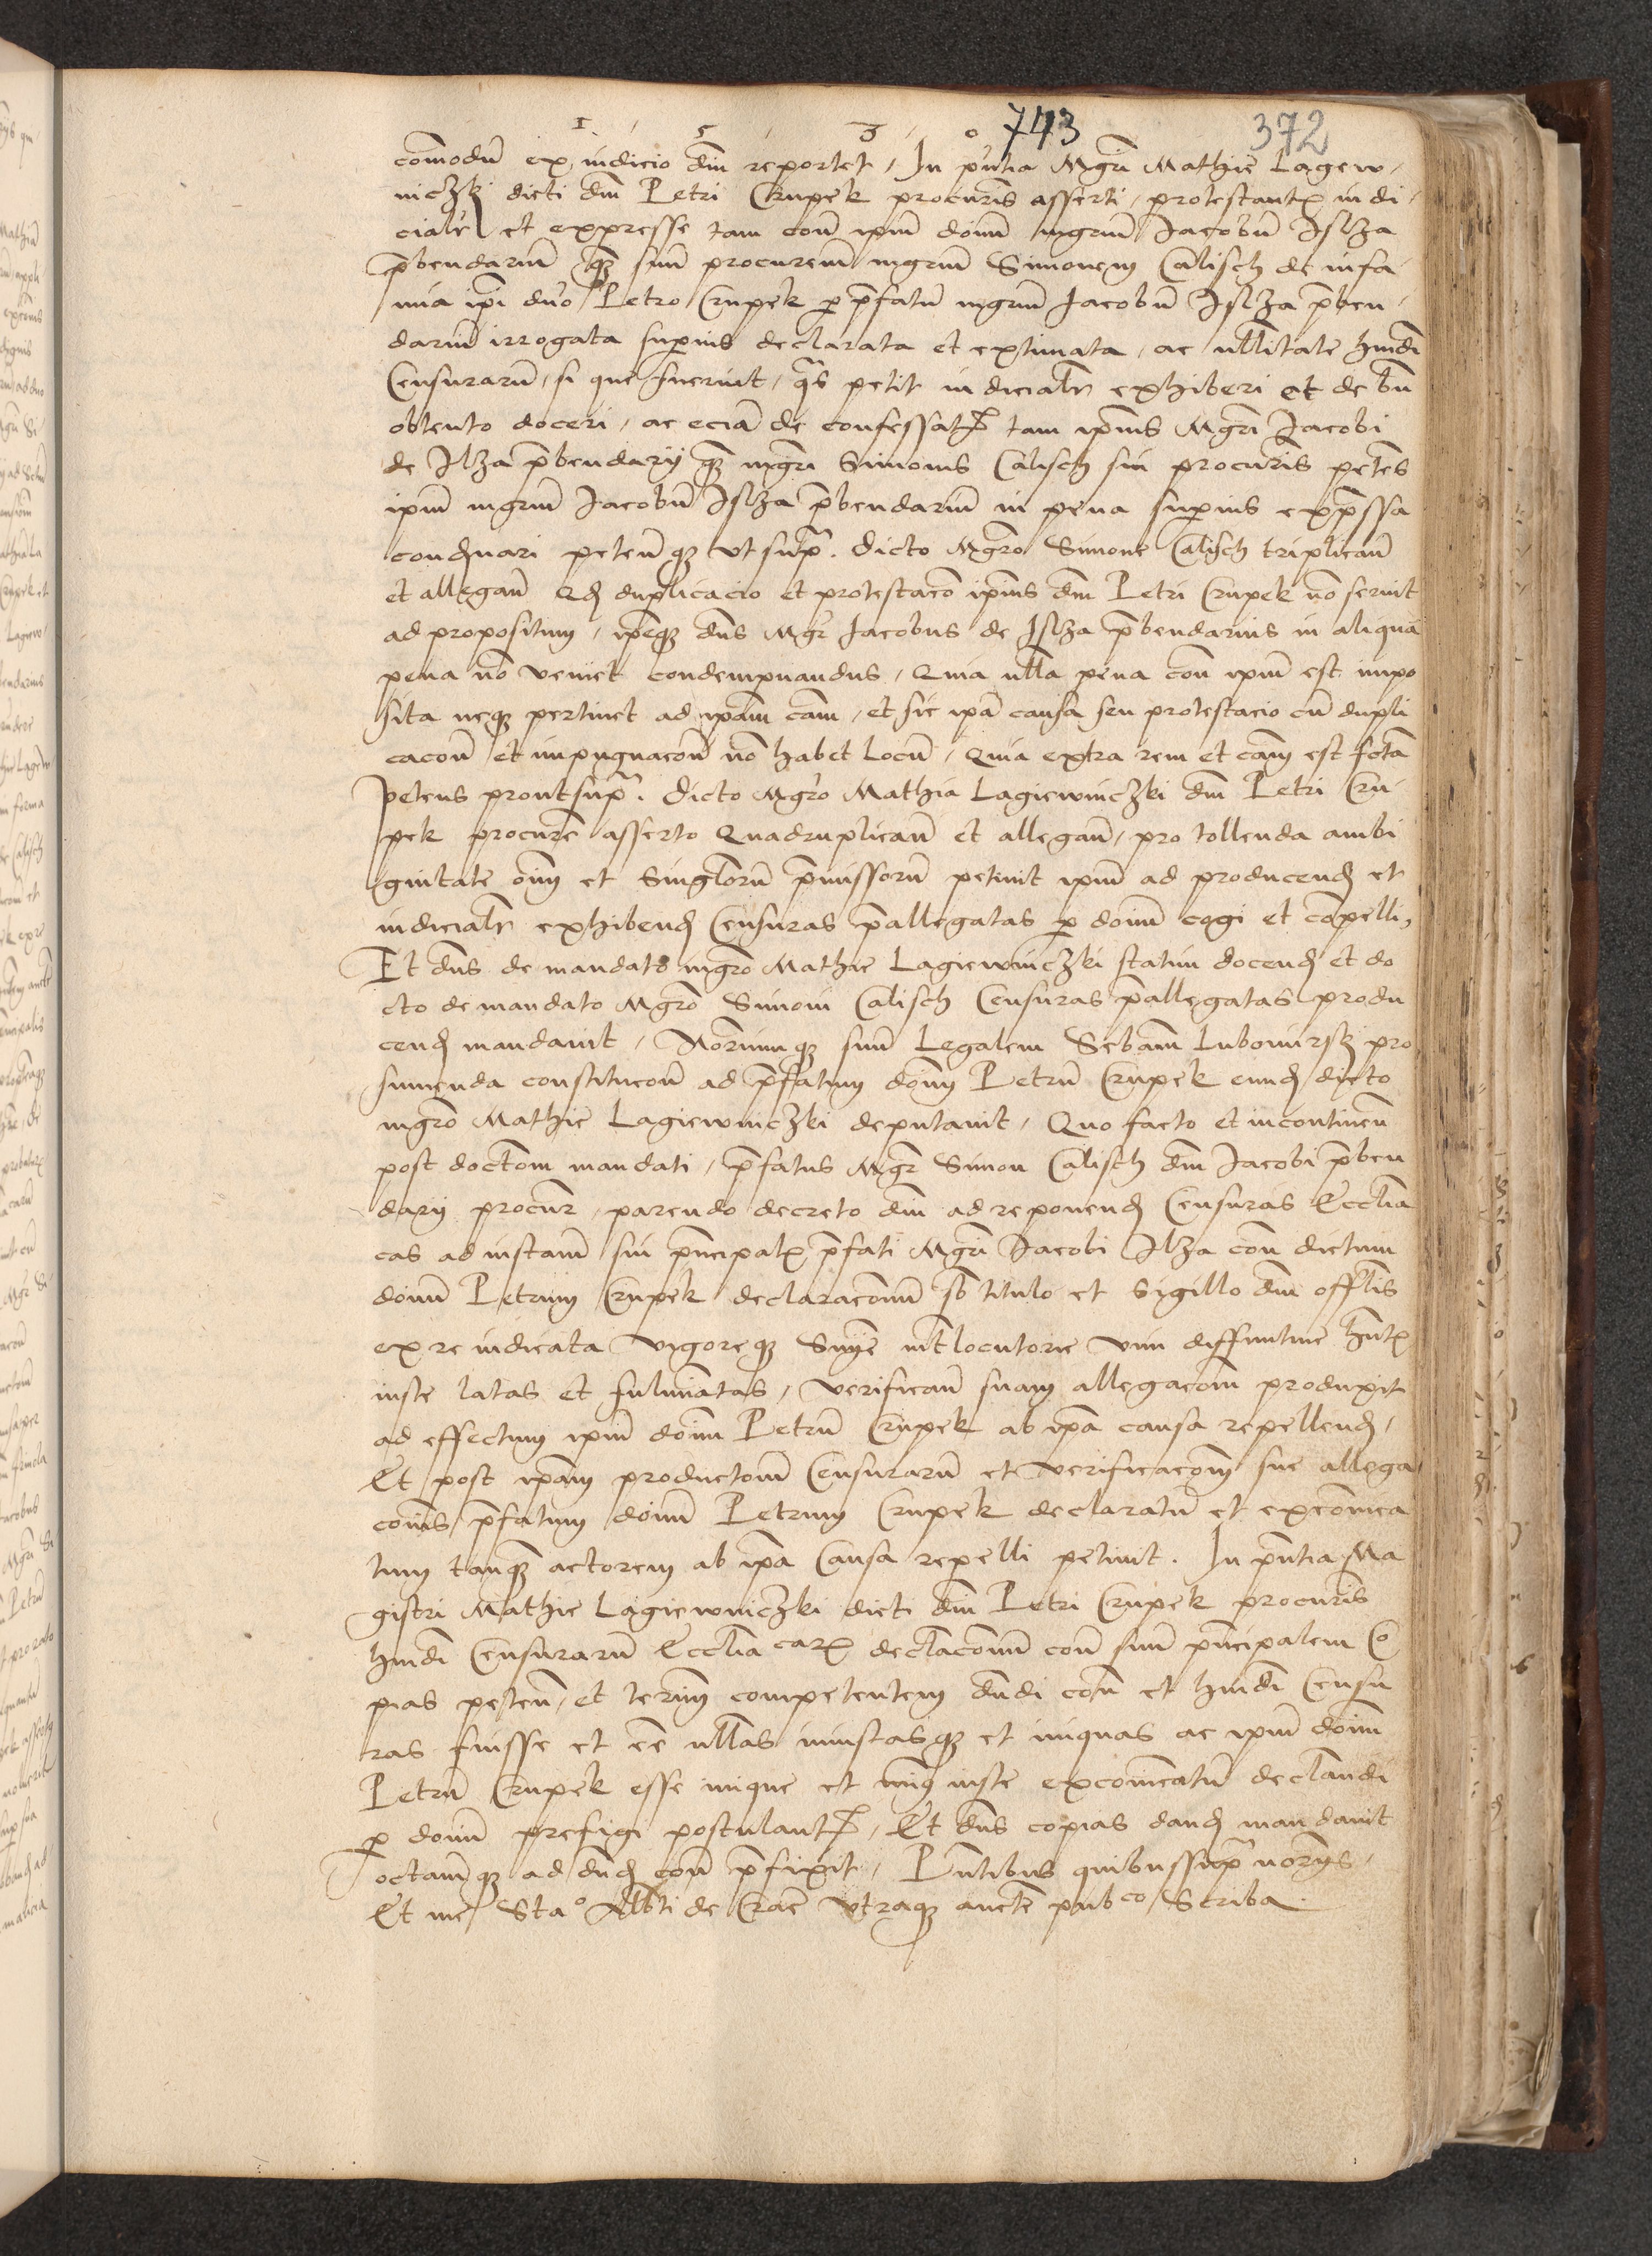 1 5 3 0 743 372
com̄odū ex iudicio dm̄ reportet, In pn̄tia Mgrī Mathie Lagiew,
niczki dicti dm̄ Petri Crupek procurīs asserti, protestant iudi,
cialr̄ et expresse tam con̄ ipm̄ don̄m mgrm̄ Jacobū Islza
p̄bendariū qz̄ suū procurem̄ mgrm̄ Simonem Calisch de infa
mia ipī dn̄o Petro Crupek p p̄fatū mgrm̄ Jacobū Islza p̄ben,
dariū irrogata supius declarata et extimata, ac nllitate hmōi
Censurarū, si que fuerint, qās petit iudicialr̄ exhiberi et de bn̄
obtento doceri, ac eciā de confessat tam ipīus Mgrī Jacobi
de Ilza p̄bendarij qz̄ mgrī Simonis Calisch sui procurīs petēs
ipm̄ mgrm̄ Jacobū Islza p̄bendariū in pena supius exp̄ssa
condēnari petenqz vt sup̄. Dicto Mgrō Simone Calisch triplicān
et allegān Qd duplicacio et protestacō ipīus dm̄ Petri Crupek nō seruit
ad propositum, ipēqz dn̄s Mgr̄ Jacobus de Islza p̄bendarius in aliqua
pena nō veniet condempnandus, Quia nlla pena con̄ ipm̄ est impo
sita neqz pertinet ad ipam̄ cām, et sic ipā causa seu protestacio cū dupli
cacon̄ et impugnacon̄ nō habet locū, Quia extra rem et cām est fctā
petens prout sup̄. Dicto Mgrō Mathia Lagiewniczki dm̄ Petri Cru
pek procurē asserto Quadruplicān et allegān, pro tollenda ambi
guitate oīm et Singlorū p̄missorū petiuit ipm̄ ad producend et
iudicialr̄ exhibend Censuras p̄allegatas p don̄m cogi et cōpelli,
Et dn̄s de mandato mgrō Mathie Lagiewniczki statim docend et do
cto de mandato Mgrō Simoni Calisch Censuras p̄allegatas produ
cend mandauit, Norīumqz suū Legalem Sebām Lubomirsk pro
sumenda constitucon̄ ad p̄fatum don̄m Petrū Crupek eund dicto
mgrō Mathie Lagiewniczki deputauit, Quo facto et incontinen̄
post doctom̄ mandati, p̄fatus Mgr̄ Simon Calisch dm̄ Jacobi p̄ben
darij procur̄, parendo decreto dm̄ ad reponend Censuras Ecclia
cas ad instam̄ sui pn̄cipal p̄fati Mgrī Jacobi Ilza con̄ dictum
don̄m Petrum Crupek declaraconum sb titulo et Sigillo dm̄ offlis
ex re iudicata vigoreqz Snīe intlocutorie vim diffinitiue hnt
iuste latas et fulminatas, verificān suam allegacom̄ produxit
ad effectum ipm̄ don̄m Petrū Crupek ab ipa causa repellend,
Et post ipam̄ productom̄ Censurarū et verificacom̄ sue allega
conis p̄fatum don̄m Petrum Crupek declaratū et excōmica
tum tanqz̄ actorem ab ipa Causa repelli petiuit. In pn̄tia Ma
gistri Mathie Lagiewniczki dicti dm̄ Petri Crupek procurīs
hmōi Censurarū Eccliacar declaconum con̄ suū pn̄cipalem Co
pias peten̄, et termm̄ competentem dn̄di con̄ et hmōi Censu
ras fuisse et eē nllas iniustasqz et iniquas ac ipm̄ don̄m
Petrū Crupek esse inique et iniuste excōmicatū declandi
p don̄m prefigi postulant, Et dn̄s copias dand mandauit
octauāqz ad dn̄d con̄ p̄fixit, Pn̄tibus quibus sup̄ norīys,
Et me Stao Albti de Crac vtraqz aucte pubco Scriba